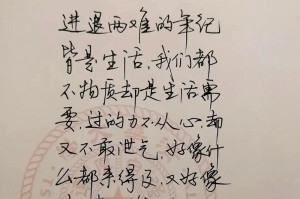 进退两难的年纪
皆是生活，我们都
不物质却是生活需
要，过的力不从心却
又不敢泄气，好像什
么都来得及，又好像